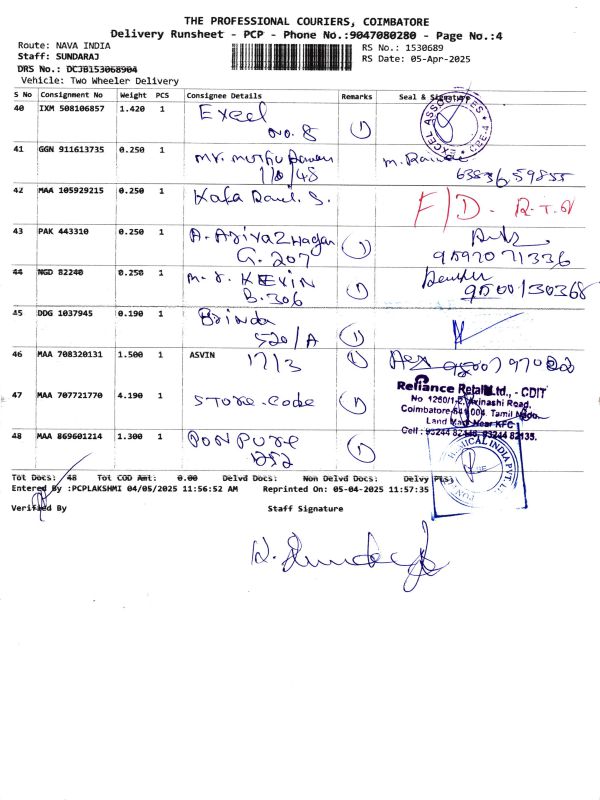 THE PROFESSIONAL COURIERS, COIMBATORE
Delivery Runsheet - PCP - Phone No.:9047080280 - Page No.:4
Route: NAVA INDIA
RS No.: 1530689
Staff: SUNDARAJ
RS Date: 05-Apr-2025
DRS No.: DCJB153068904
Vehicle: Two Wheeler Delivery
S No Consignment No Weight PCS Consignee Details Remarks Seal & Signature
40 IXM 508106857 1.420 1 Excel No. 8 1
EXCEL ASSOCIATES
41 GGN 911613735 0.250 1 Mr. 110/48 M.
42 MAA 105929215 0.250 1 S. F/D. R.T.O
43 PAK 443310 0.250 1 A. G. 207 1
44 NGD 82240 0.250 1 M. S. KEVIN B. 306 1 9500130368
45 DDG 1037945 0.190 1 Brinda 520/A 1
46 MAA 708320131 1.500 1 ASVIN 17/3 1
47 MAA 707721770 4.190 1 STORE. CODE 1
Reliance Retail Ltd., - CDIT
No 1260/1-2, Avinashi Road,
Coimbatore-641 004. Tamil Nadu.
Land Mark Near KFC
Cell : 93244 82135.
48 MAA 869601214 1.300 1 PONPURE 1252 1
CHEMICAL INDIA PVT. LTD
Tot Docs: 48 Tot COD Amt: 0.00 Delvd Docs: Non Delvd Docs: Delvy Pts:
Entered By :PCPLAKSHMI 04/05/2025 11:56:52 AM Reprinted On: 05-04-2025 11:57:35
Verified By Staff Signature